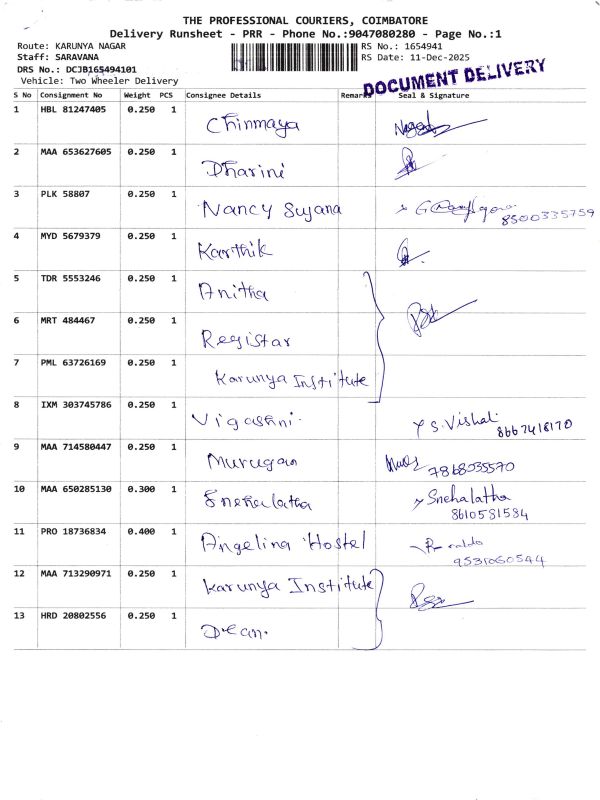 THE PROFESSIONAL COURIERS, COIMBATORE
Delivery Runsheet - PRR - Phone No.:9047080280 - Page No.:1
Route: KARUNYA NAGAR
RS No.: 1654941
Staff: SARAVANA
RS Date: 11-Dec-2025
DRS No.: DCJB165494101
Vehicle: Two Wheeler Delivery
DOCUMENT DELIVERY
S No Consignment No Weight PCS Consignee Details Remarks Seal & Signature
1 HBL 81247405 0.250 1 Chinmaya
2 MAA 653627605 0.250 1 Dharini
3 PLK 58807 0.250 1 Nancy Sujana 8500335759
4 MYD 5679379 0.250 1 Karthik
5 TDR 5553246 0.250 1 Anitha
6 MRT 484467 0.250 1 Registar
7 PML 63726169 0.250 1 Karunya Institute
8 IXM 303745786 0.250 1 Vigashni S. Vishal
8667418170
9 MAA 714580447 0.250 1 Murugan 7868035570
10 MAA 650285130 0.300 1 Snehalatha Snehalatha
8610581584
11 PRO 18736834 0.400 1 Angelina Hostel
9531060544
12 MAA 713290971 0.250 1 Karunya Institute
13 HRD 20802556 0.250 1 Dean.